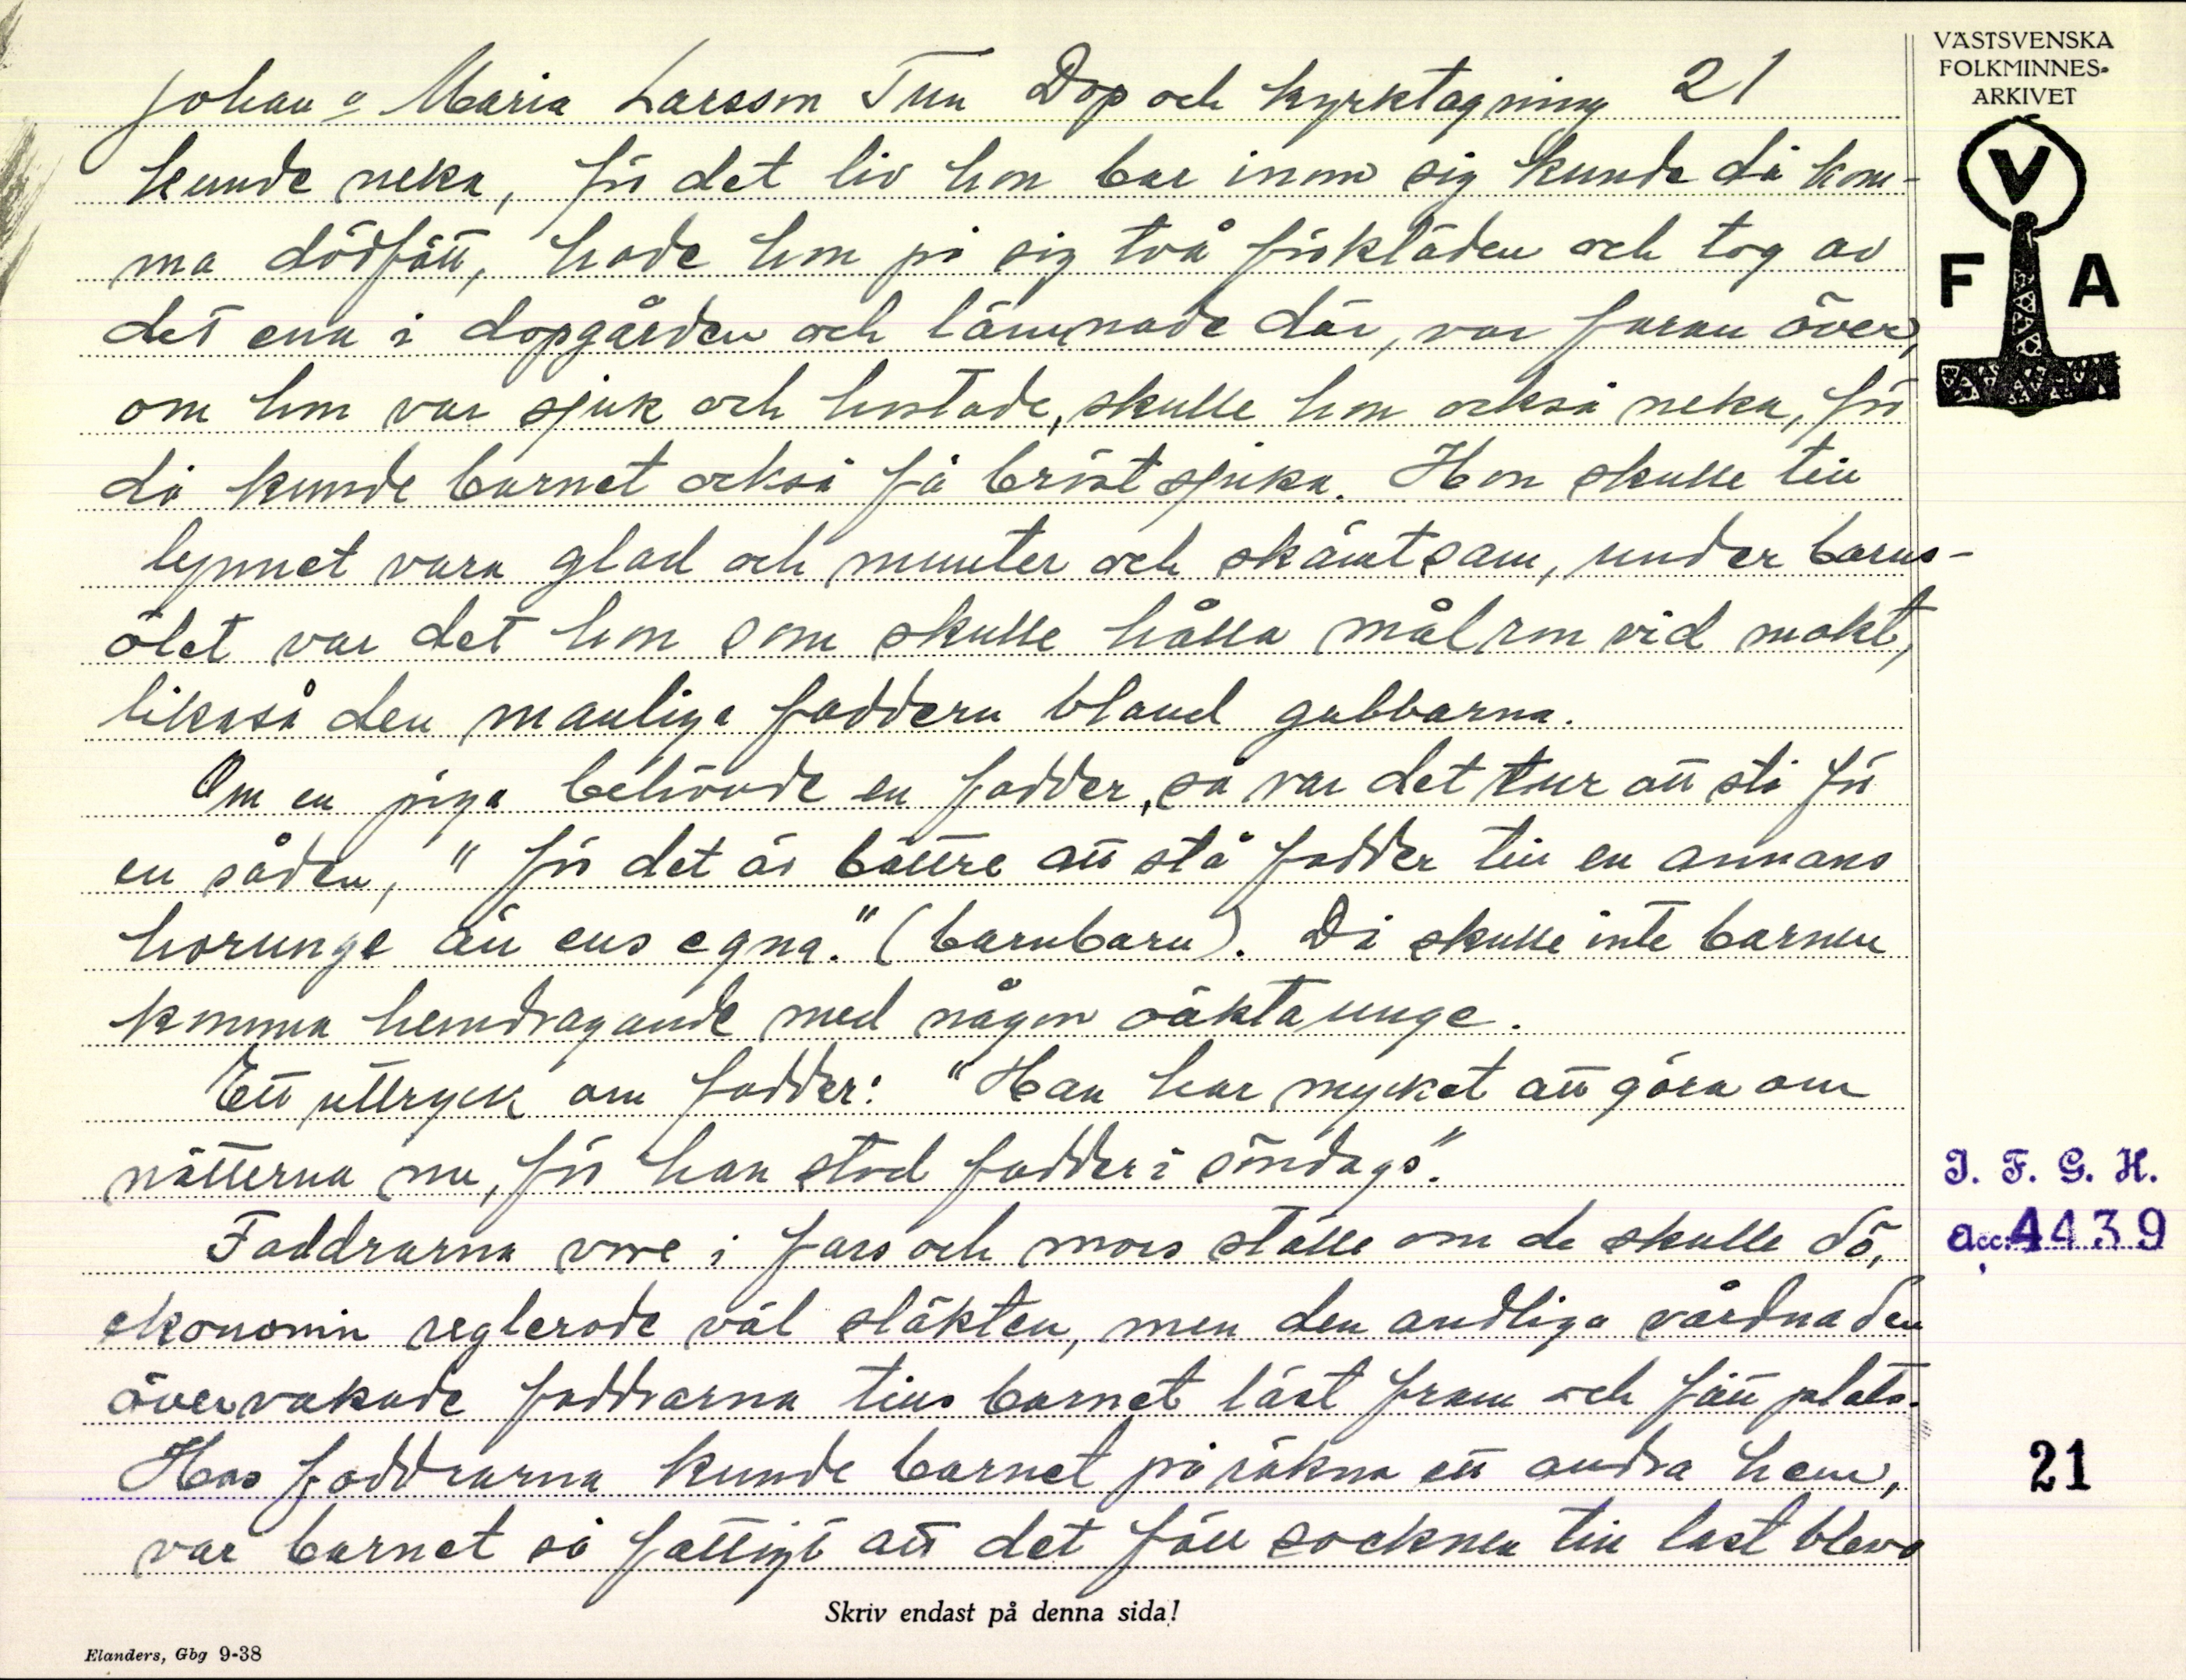 Johan o Maria Larsson Tun Dop och kyrktagning 21
kunde neka, för det liv hon bar inom sig kunde då kom-
ma dödfött, hade hon på sig två förkläden och tog av
det ena i dopgården och lämnade där, var faran över,
om hon var sjuk och hostade, skulle hon också neka, för
då kunde barnet också få bröstsjuka. Hon skulle till
lynnet vara glad och munter och skämtsam, under barns-
ölet var det hon som skulle hålla målron vid makt,
likaså den manliga faddern bland gubbarna.
Om en piga behövde en fadder, så var det tur att stå för
en såden, "för det är bättre att stå fadder till en annans
horunge än ens egna." (barnbarn). Då skulle inte barnen
komma hemdragande med någon oäkta unge.
Ett uttryck om fadder: "Han har mycket att göra om
nätterna nu, för han stod fadder i söndags".
Faddrarna vore i fars och mors ställe om de skulle dö,
ekonomin reglerade väl släkten, men den andliga vårdnaden
övervakade faddrarna tills barnet läst fram och fått plats.
Hos faddrarna kunde barnet påräkna ett andra hem,
var barnet så fattigt att det föll socknen till last blevo
Skriv endast på denna sida!
Elanders, Gbg 9-38
VÄSTSVENSKA
FOLKMINNES-
ARKIVET
V
F A
I. F. G. H.
Acc. 4439
21